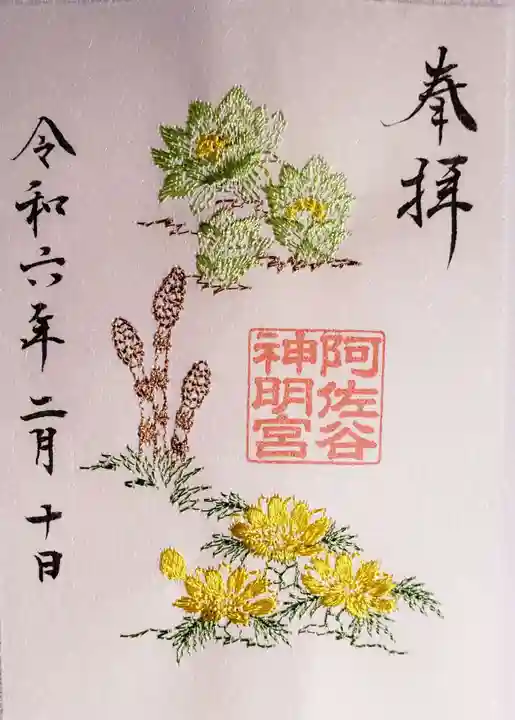 奉拝
阿佐谷
神明宮
令和六年 二月 十日